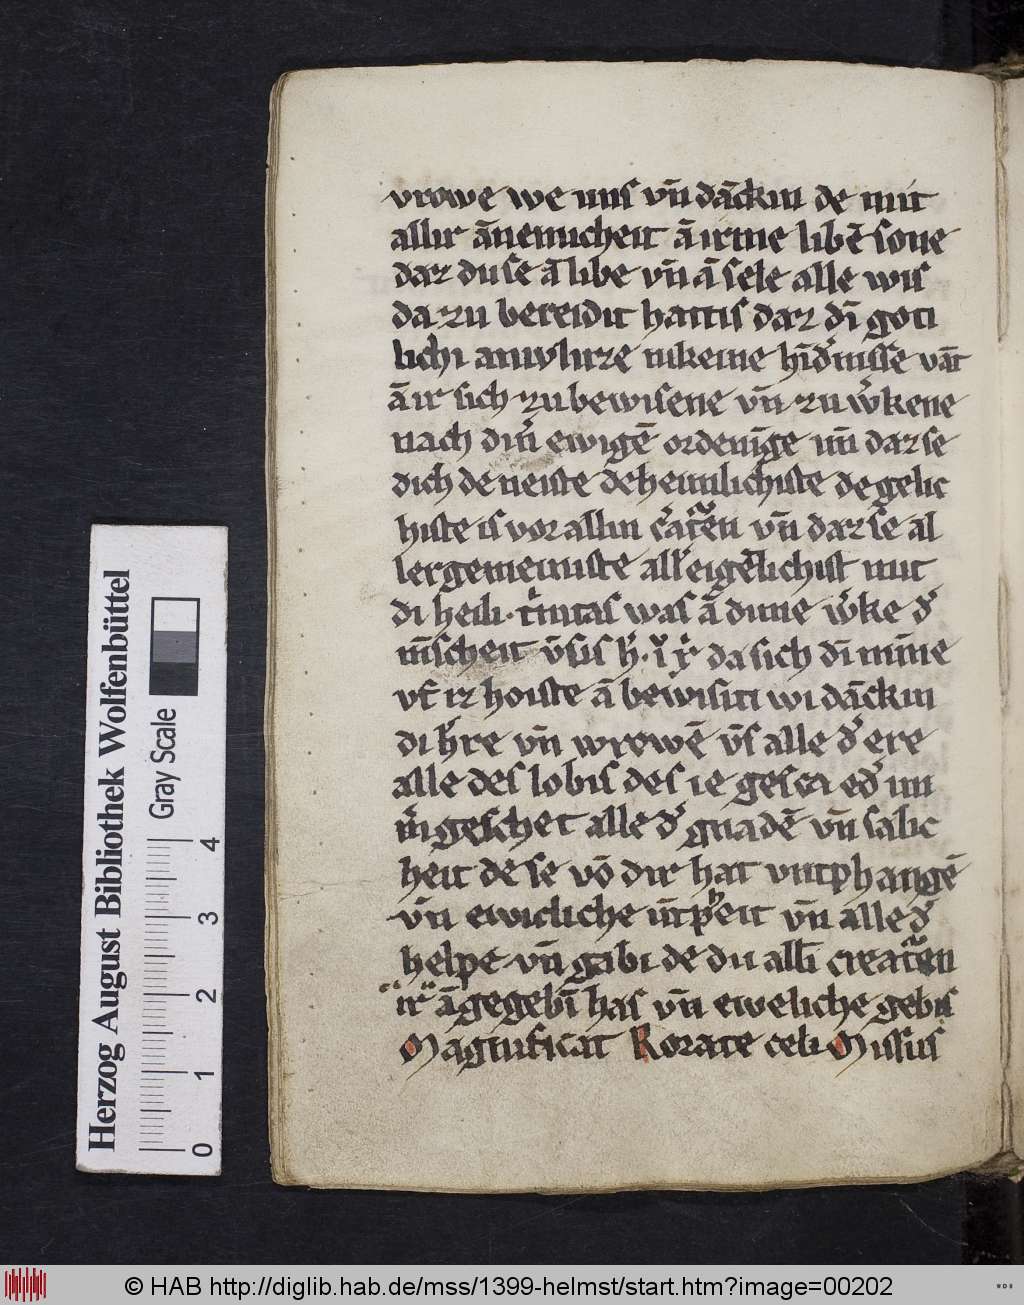 vrowe we uns vn̄ dāckin de mit
allir ānemicheit ā irme libē sone
dar du se ā libe vn̄ ā sele alle wis
da zu bereidit hattis daz dī goti
lichi nikeine
ā ir sich zu bewisene vn̄ zu w̓kene
nach dīr ewigē ordenūge un̄ daz se
dich de neiste de heimlichiste de gelic
histe is vor allin vn̄ daz se al
lergemeiniste all̓ eigēlichist mit
di heili · t̓initas was ā dime w̓ke d̓
mīscheit v̄sis h̓. da sich dī minne
vf iz hoiste ā bewisiti wi dāckin
di h̓re vn̄ wrowē v̄s alle d̓ ere
alle des lobis des ie gesca ed̓ im
m̓ geschet alle d̓ gnadē vn̄ salic
heit de se vō dir hat vntphangē
vn̄ ewicliche vn̄ alle d̓
helpe vn̄ gabi de du allī creat̓en
ir ā gegebī has vn̄ eweliche gebis
Magnificat Rorate celi Missus
Herzog August Bibliothek Wolfenbüttel
Gray Scale
0 1 2 3 4
© HAB http://diglib.hab.de/mss/1399-helmst/start.htm?image=00202